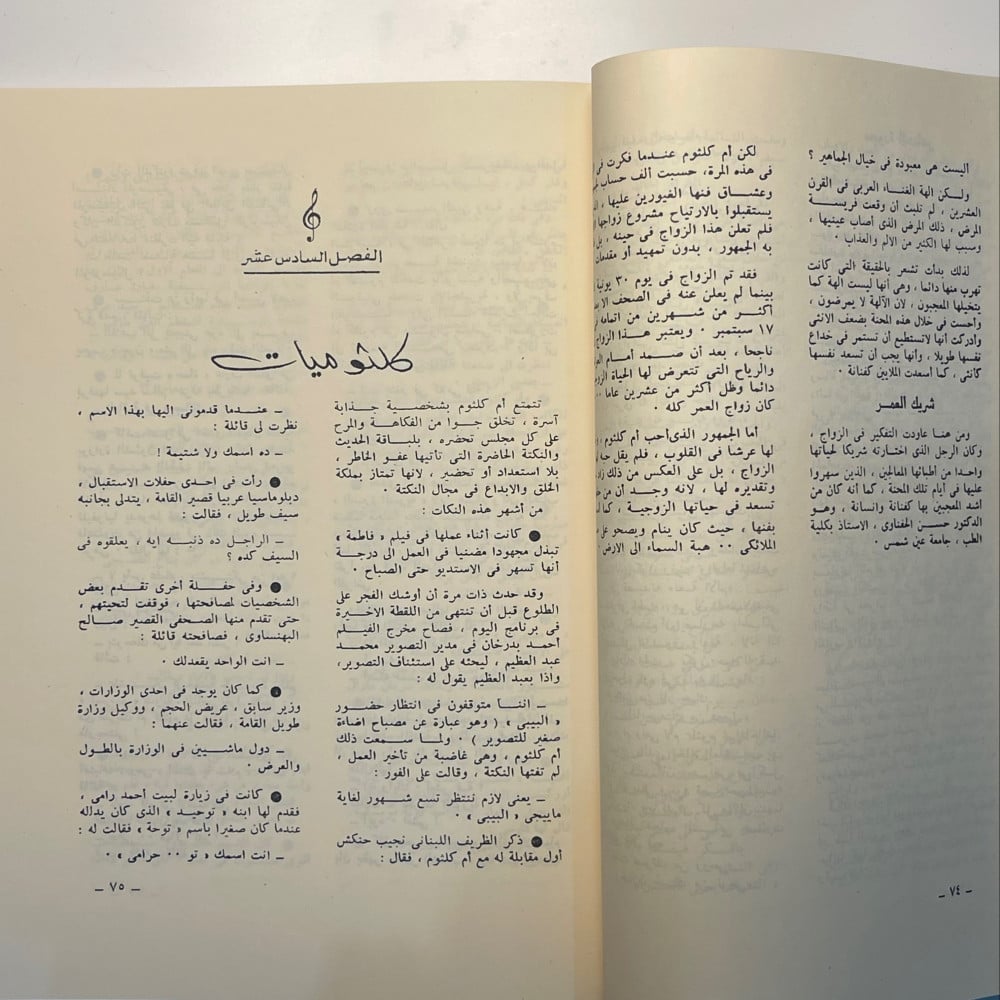 أليست هى معبودة فى خيال الجماهير ؟
ولكن الهة الغناء العربى فى القرن
العشرين ، لم تلبث أن وقعت فريسة
المرض ، ذلك المرض الذى أصاب عينيها ،
وسبب لها الكثير من الألم والعذاب .
لذلك بدأت تشعر بالحقيقة التى كانت
تهرب منها دائما ، وهى أنها ليست الهة كما
يتخيلها المعجبون ، لأن الآلهة لا يمرضون ،
وأحست فى خلال هذه المحنة بضعف الانثى
وأدركت أنها لاتستطيع أن تستمر فى خداع
نفسها طويلا ، وأنها يجب أن تسعد نفسها
كأنثى ، كما أسعدت الملايين كفنانة .
شريك العمر
ومن هنا عاودت التفكير فى الزواج ،
وكان الرجل الذى اختارته شريكا لحياتها
واحدا من أطبائها المعالجين ، الذين سهروا
عليها فى أيام تلك المحنة ، كما أنه كان من
أشد المعجبين بها كفنانة وانسانة ، وهو
الدكتور حسن الحفناوى ، الاستاذ بكلية
الطب ، جامعة عين شمس .
لكن أم كلثوم عندما فكرت فى
فى هذه المرة، حسبت ألف حساب
وعشاق فنها الغيورين عليها ،
يستقبلوا بالارتياح مشروع زواجها
فلم تعلن هذا الزواج فى حينه ، بل
به الجمهور ، بدون تمهيد أو مقدمات
فقد تم الزواج فى يوم ٣٠ يونية
بينما لم يعلن عنه فى الصحف الا
أكثر من شهرين من اتمامه
١٧ سبتمبر . ويعتبر هذا الزواج
ناجحا ، بعد أن صمد أمام
والرياح التى تتعرض لها الحياة
دائما وظل أكثر من عشرين عاما ..
كان زواج العمر كله .
أما الجمهور الذى أحب أم كلثوم ،
لها عرشا فى القلوب ، فلم يقل
الزواج ، بل على العكس من ذلك
وتقديره لها ، لأنه وجد أن من
تسعد فى حياتها الزوجية ، كما
بفنها ، حيث كان ينام ويصحو على
الملائكى .. هبة السماء الى الأرض .
ـ ٧٤ ـ
الفصل السادس عشر
كلثوميات
تتمتع أم كلثوم بشخصية جذابة
آسرة ، تخلق جوا من الفكاهة والمرح
على كل مجلس تحضره ، بلباقة الحديث
والنكتة الحاضرة التى تأتيها عفو الخاطر ،
بلا استعداد أو تحضير ، لأنها تمتاز بملكة
الخلق والابداع فى مجال النكتة .
من أشهر هذه النكات :
● كانت أثناء عملها فى فيلم « فاطمة »
تبذل مجهودا مضنيا فى العمل الى درجة
أنها تسهر فى الاستديو حتى الصباح .
وقد حدث ذات مرة أن أوشك الفجر على
الطلوع قبل أن تنتهى من اللقطة الاخيرة
فى برنامج اليوم ، فصاح مخرج الفيلم
أحمد بدرخان فى مدير التصوير محمد
عبد العظيم ، ليحثه على استئناف التصوير،
واذا بعبد العظيم يقول له :
ـ اننا متوقفون فى انتظار حضور
« البيبى » ( وهو عبارة عن مصباح اضاءة
صغير للتصوير ) . ولما سمعت ذلك
أم كلثوم ، وهى غاضبة من تأخير العمل ،
لم تفتها النكتة ، وقالت على الفور :
ـ يعنى لازم ننتظر تسع شهور لغاية
ماييجى « البيبى » .
● ذكر الظريف اللبنانى نجيب حنكش
أول مقابلة له مع أم كلثوم ، فقال :
ـ عندما قدمونى اليها بهذا الاسم ،
نظرت لى قائلة :
ـ ده اسمك ولا شتيمة !
● رأت فى احدى حفلات الاستقبال ،
دبلوماسيا عربيا قصير القامة ، يتدلى بجانبه
سيف طويل ، فقالت :
ـ الراجل ده ذنبه ايه ، يعلقوه فى
السيف كده ؟
● وفى حفلة أخرى تقدم بعض
الشخصيات لمصافحتها ، فوقفت لتحيتهم ،
حتى تقدم منها الصحفى القصير صالح
البهنساوى ، فصافحته قائلة :
ـ انت الواحد يقعدلك .
● كما كان يوجد فى احدى الوزارات ،
وزير سابق ، عريض الحجم ، ووكيل وزارة
طويل القامة ، فقالت عنهما :
ـ دول ماشيين فى الوزارة بالطول
والعرض .
● كانت فى زيارة لبيت أحمد رامى ،
فقدم لها ابنه « توحيد » الذى كان يدلله
عندما كان صغيرا باسم « توحة » فقالت له :
ـ انت اسمك « تو .. حرامى » .
ـ ٧٥ ـ